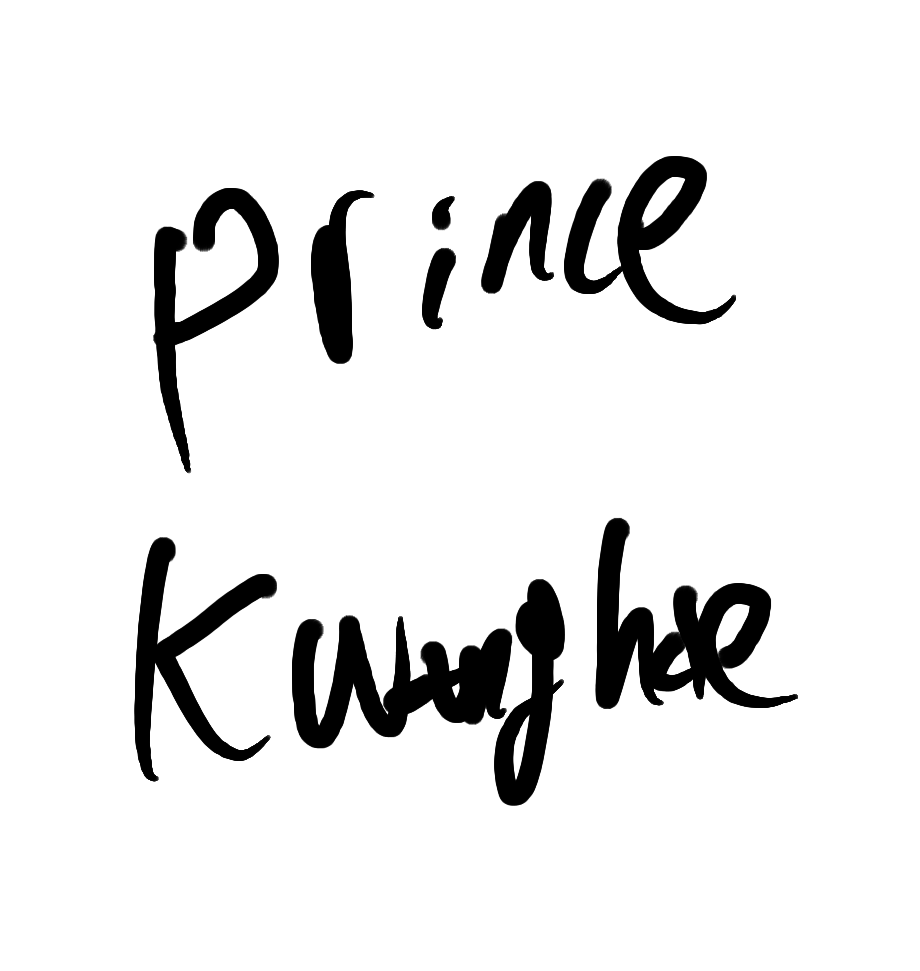 prince
Kwanghae